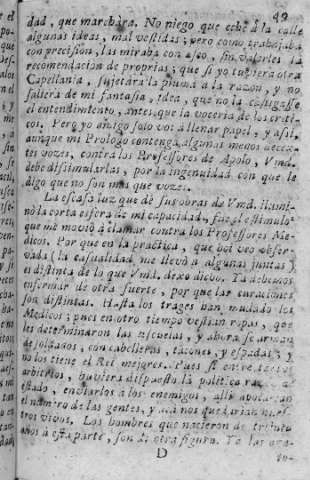 49
dad, que marchàra. No niego que echè à la calle
algunas ideas, mal vestidas; pero como trabajaba
con precision, las miraba con asco, sin valerles la
recomendacion de proprias; que si yo tuviera otra
Capellania, sujetàra la pluma à la razon, y no
saliera de mi fantasia, idea, que no la castigasse
el entendimiento, antes que la voceria de los criti-
cos. Pero yo amigo solo voy à llenar papel, y assi,
aunque mi Prologo contenga algunas menos
tes vozes, contra los Professores de Apolo, Vmd.
debe dissimularlas, por la ingenuidad con que le
digo que no son mas que vozes.
La escasa luz que de sus obras de Vmd. ilumi-
nò la corta esfera de mi capacidad, fue el estimulo
que me moviò à clamar contra los Professores Me-
dicos. Por que en la practica, que hoy veo obser-
vada (la casualidad me llevò à algunas juntas)
es distinta de lo que Vmd. dexo dicho. Ta debemos
enfermar de otra suerte, por que las curaciones
son distintas. Hasta los trages han mudado los
Medicos; pues en otro tiempo vestian ropas, que
les determinaron las escuelas, y ahora se arman
de soldados, con cabelleras, tacones, y espadas; y
no los tiene el Rei mejores. Pues si entre tantos
arbitrios, huviera dispuesto la politica
estado, enviarlos à los enemigos, allà apocaran
el numero de las gentes, y acà nos quedarian nues-
tros vivos. Los hombres que nacieron de treinta
años à esta parte, son de otra figura. To las
D